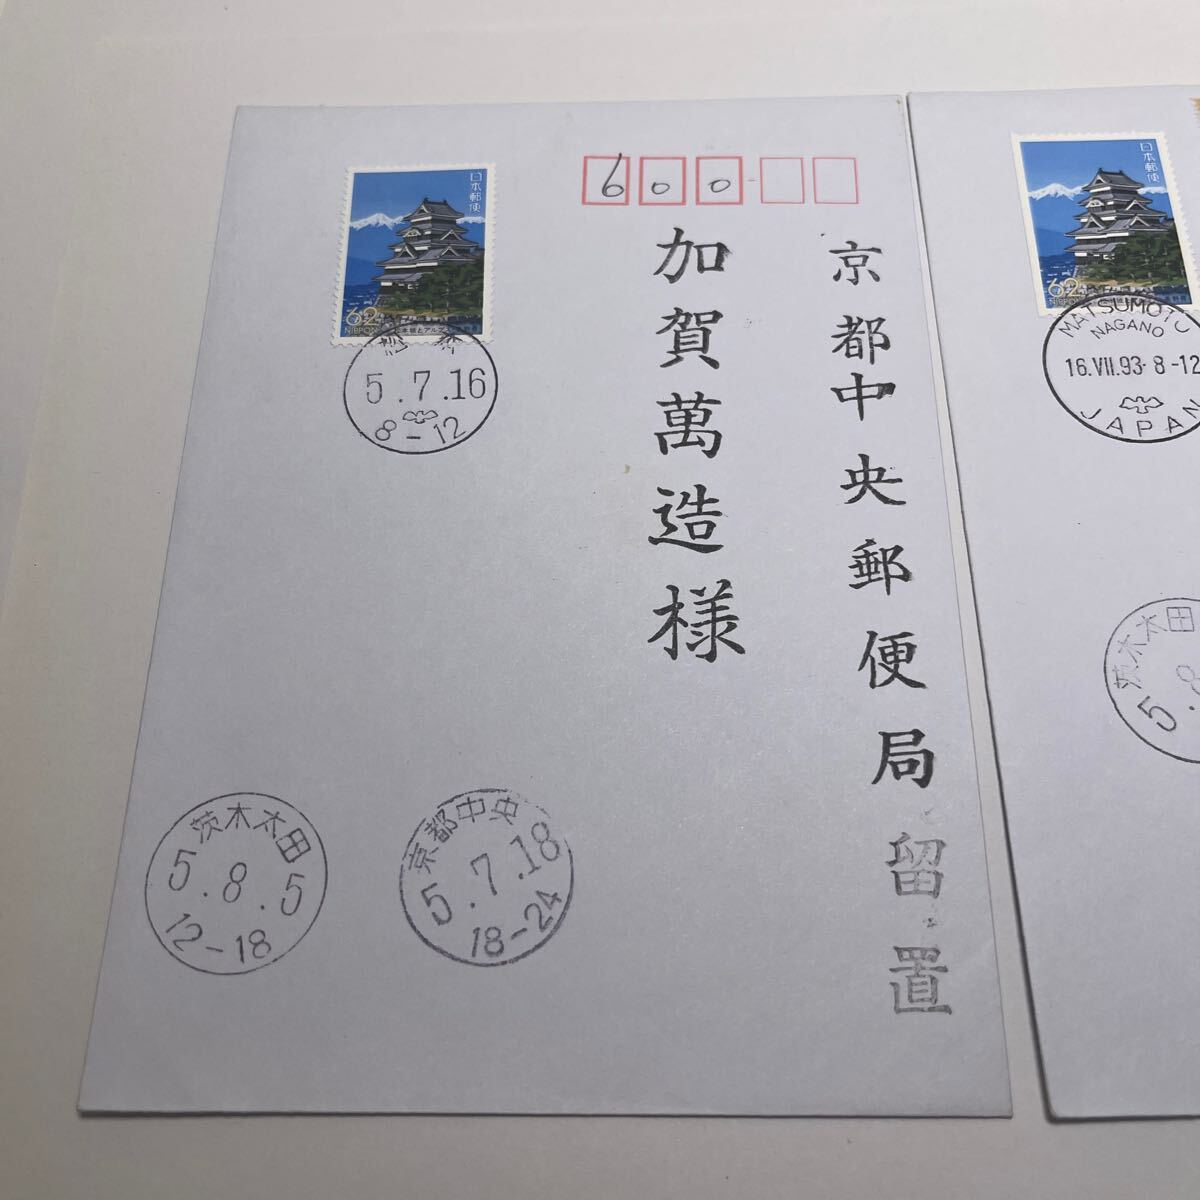 日本郵便
62
NIPPON
5.7.16
8-12
600
京都中央郵便局留置
加賀萬造様
茨木太田
5.8.5
12-18
京都中央
5.7.18
18-24
日本郵便
62
MATSUMOTO
NAGANO
16.VII.93.8-12
JAPAN
茨木太田
5.8